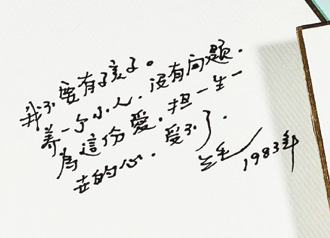 我不要有孩子。
养一个小人，没有问题。
为這份爱，担一生一
去的心，受不了。
三毛 1983年